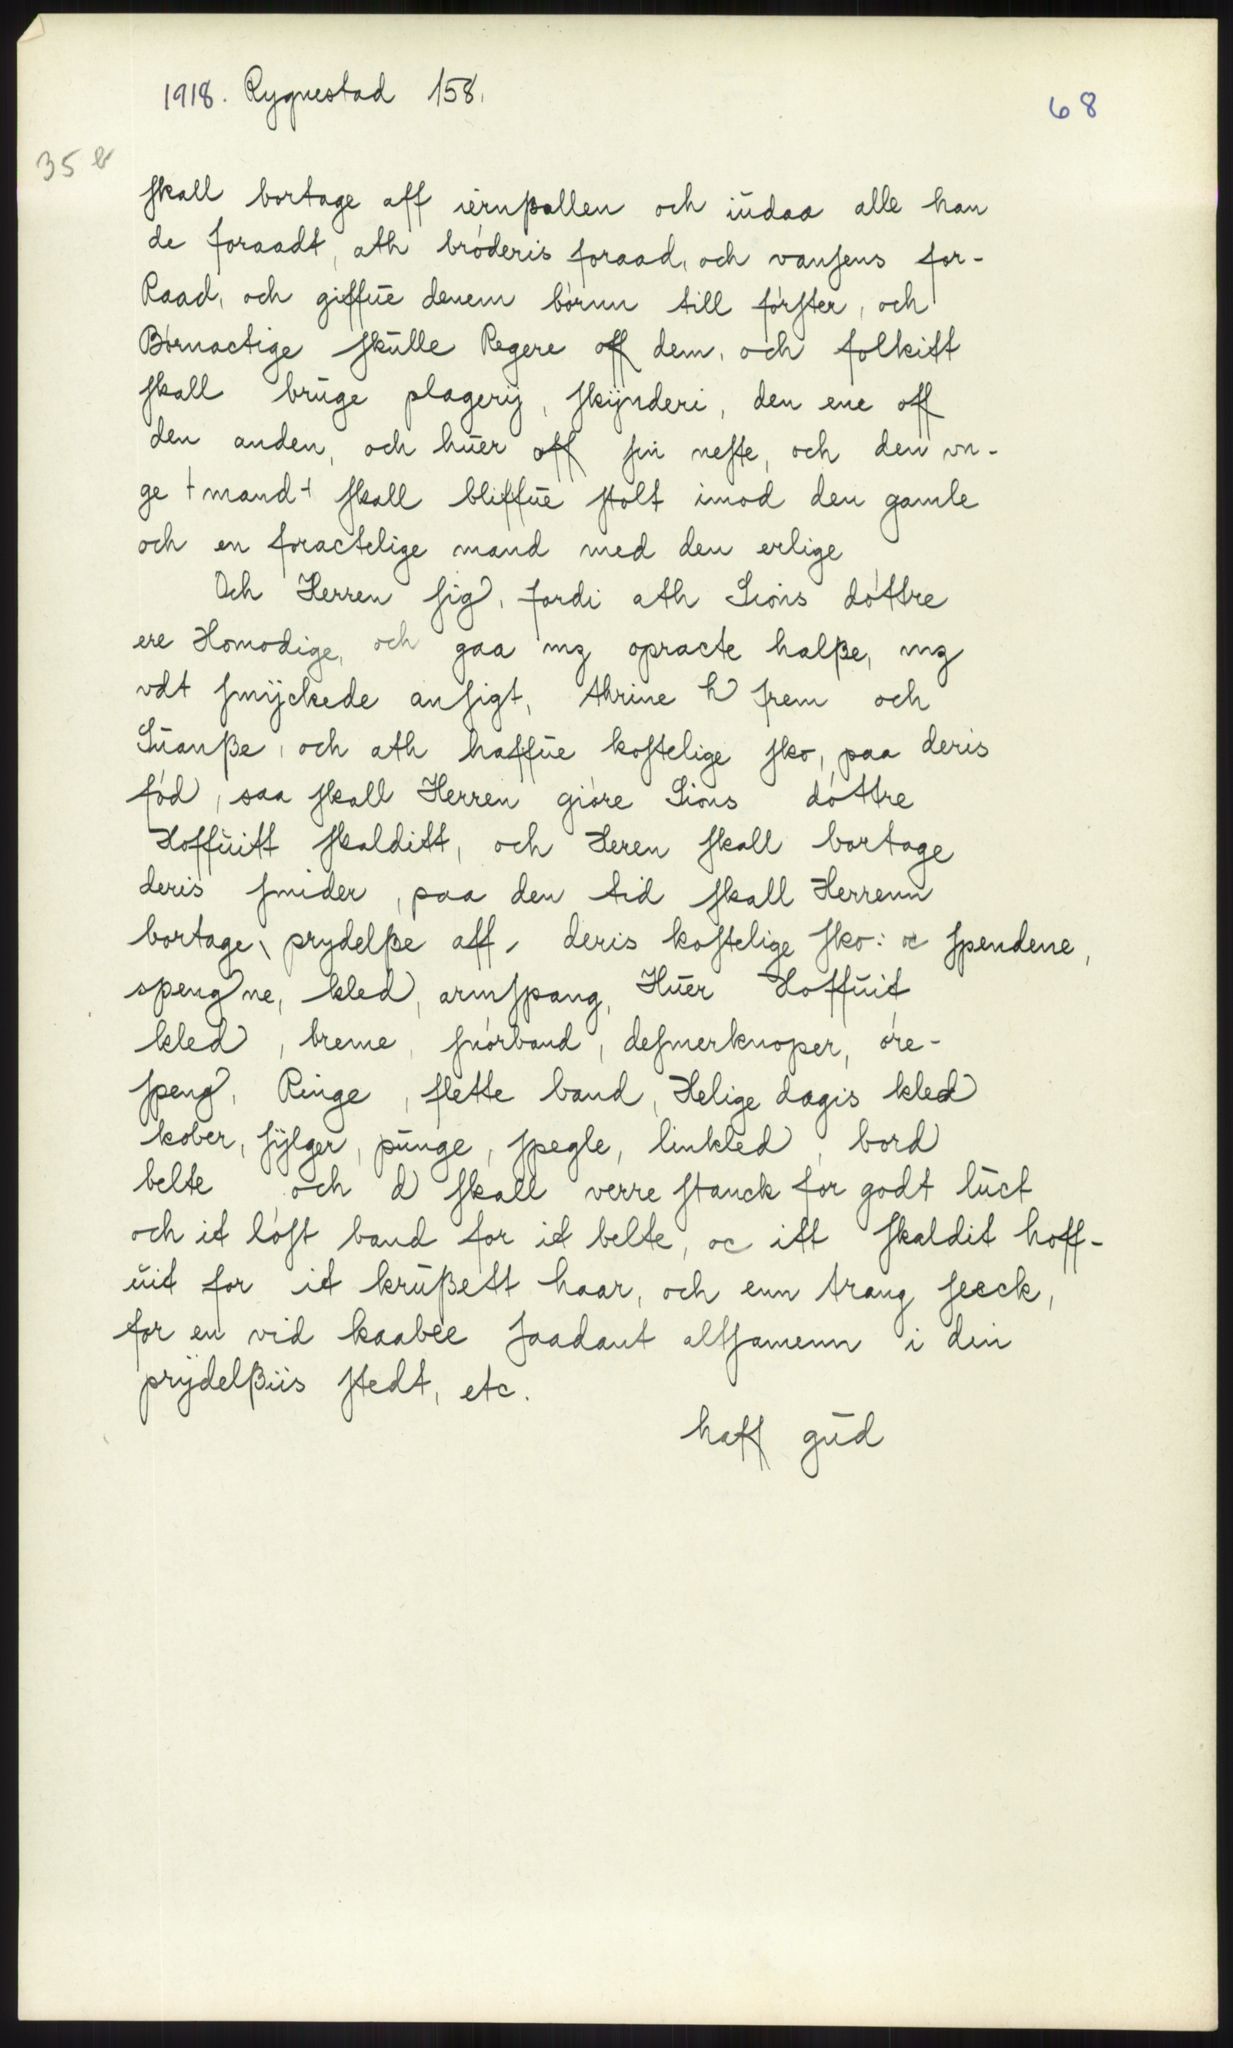 1918. Rygnestad 158.
68
35 b
skall bortage aff iernßallen och iŭdaa alle han
de foraadt, ath bróderis foraad, och vansens for-
Raad, och giffŭe denem bórnn till fórster, och
Bórnactige skŭlle Regere off dem, och folkitt
skall brŭge plagerÿ, skÿnderi, den ene off
den anden, och hŭer off sin neste, och den vn-
ge +mand+ skall bliffŭe stolt imod den gamle
och en foractelige mand med den erlige
Och Herren sig, fordi ath Sions dóttre
ere Homodige, och gaa mz opracte halße, mz
vdt smÿckede ansigt, thrine h frem och
Sŭanße, och ath haffŭe kostelige sko, paa deris
fód, saa skall Herren gióre Sions dóttre
Hoffŭitt skalditt, och Heren skall bortage
deris smider, paa den tid skall Herrenn
bortage, prydelße aff, deris kostelige sko: oc spendene,
spengne, kled, armspang, Hŭer Hoffŭit
kled, breme, snórband, desmerknoper, óre-
speng, Ringe, flette band, Helige dagis kled
kober, sÿlger, pŭnge, spegle, linkled, bord
belte och d skall verre stanck for godt lŭct
och it lóst band for it belte, oc itt skaldit hoff-
ŭit for it krŭßett haar, och enn trang seeck,
for en vid kaabee saadant altsamenn i din
prÿdelßiis stedt, etc.
haff gŭd